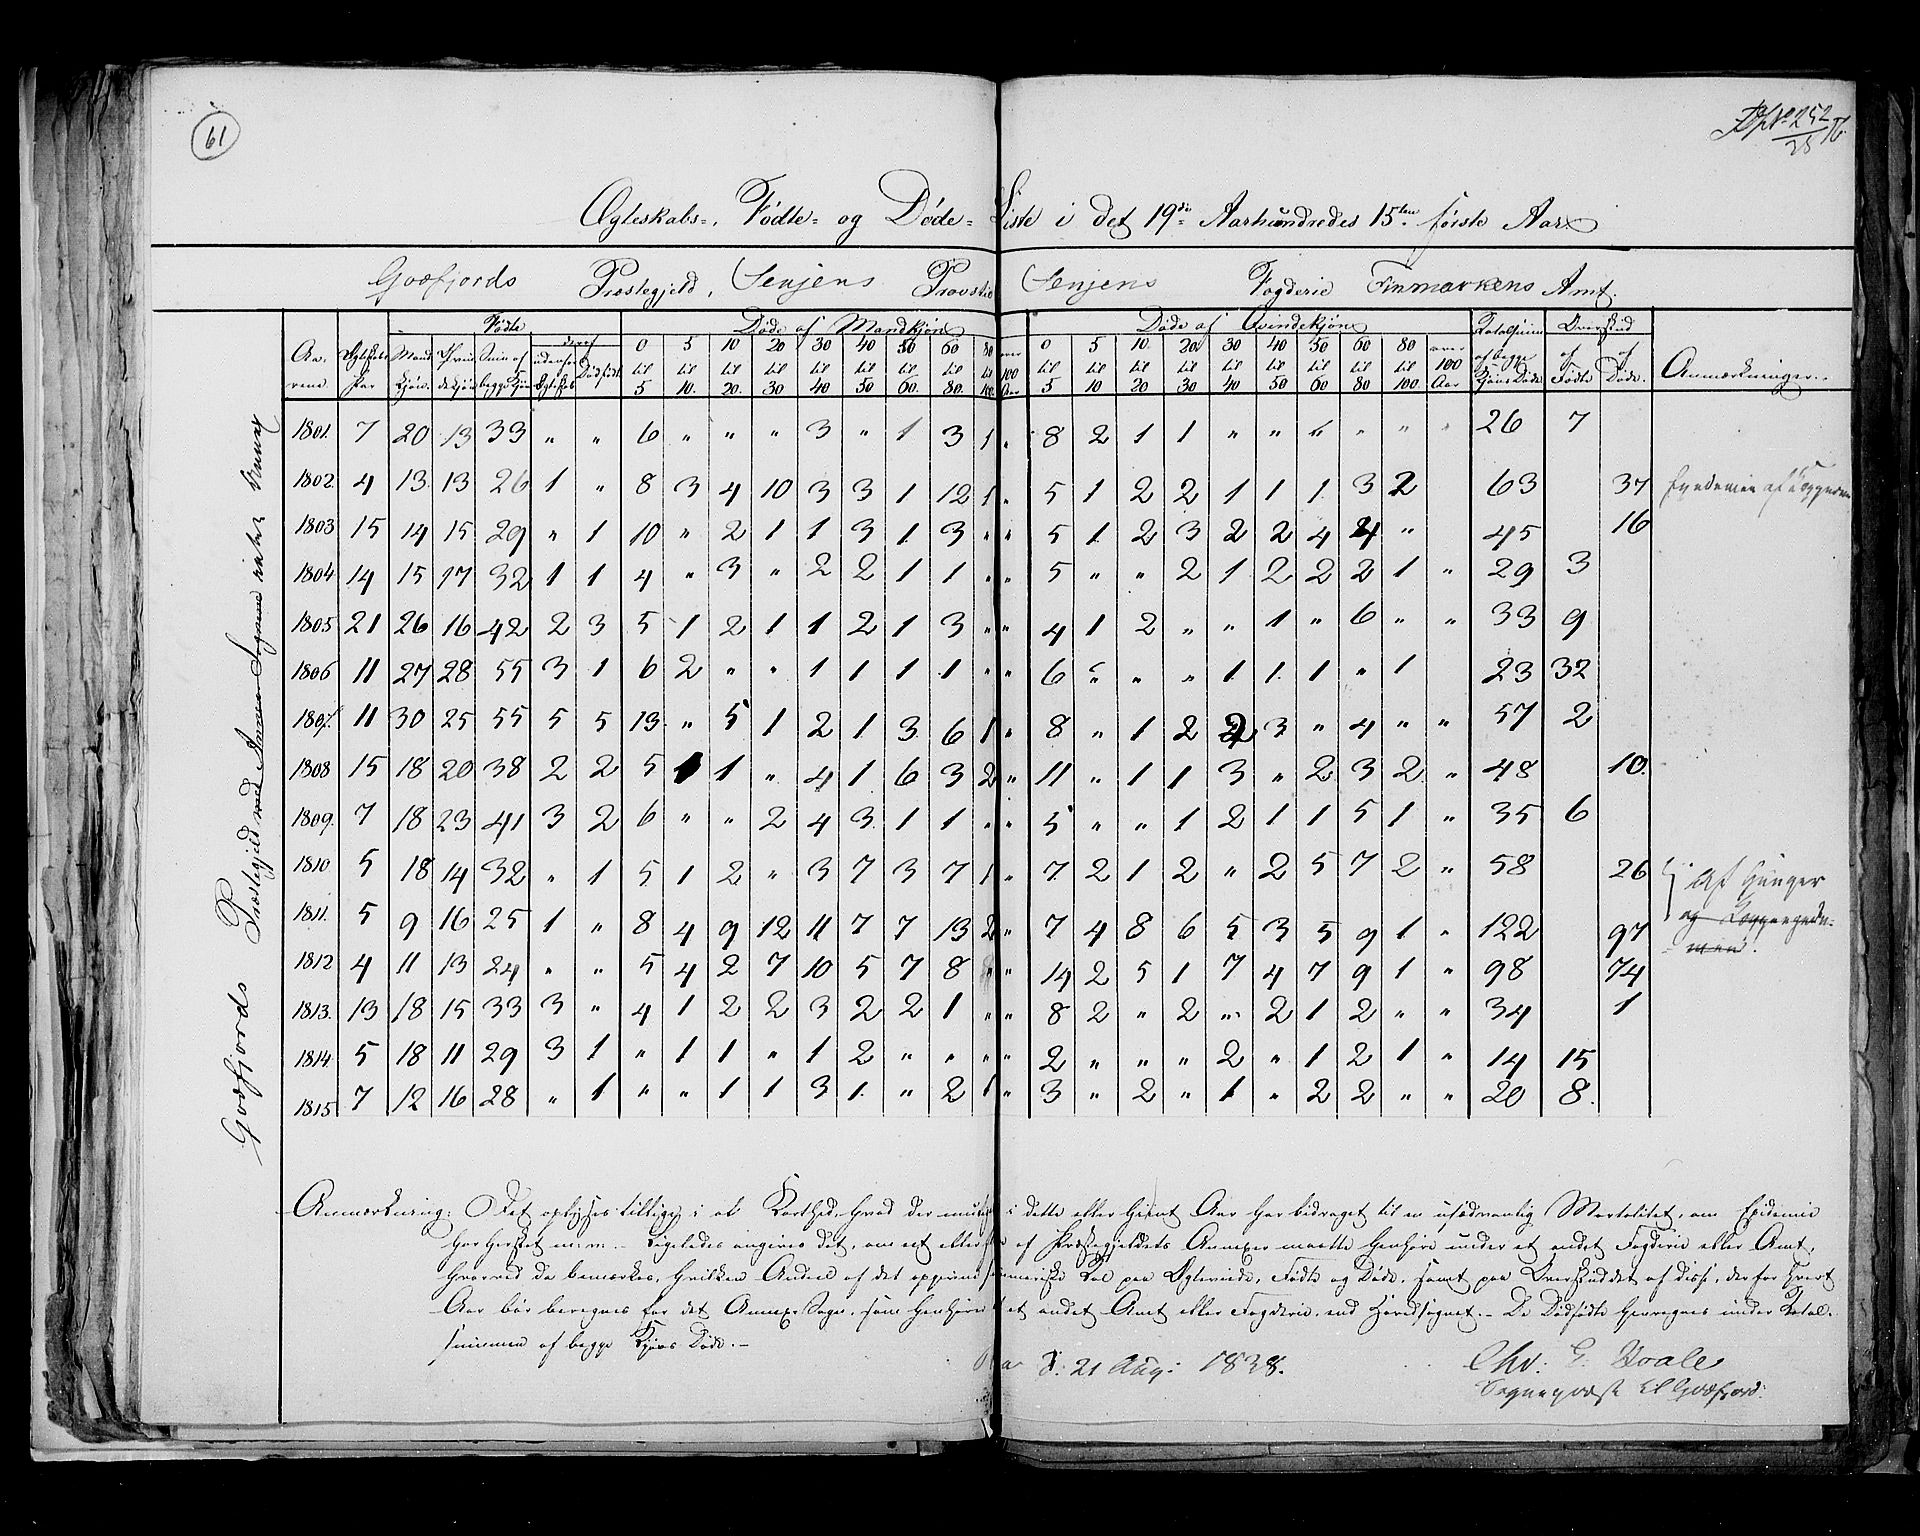 61
252
28
Ægteskabs-, Fødte- og Døde-Liste i det 19de Aarhundredes 15ten første Aar
Gosfjords Præstegjeld, Senjens Provstie Senjens Fogderie Finmarkens Amt.
Gosfjords Præstegjeld med
Fødte Døde af Mandkjøn Døde af Qvindekjøn Totalsum Overskud
Aa- Ægteskabs Mand Qvin Sum af udenfor Dødfødte 0 5 10 20 30 40 50 60 80 over 0 5 10 20 30 40 50 60 80 over af begge af af Anmærkninger.
rene. Par kjøn. dekjøn begge Kjøn Ægteskab til til til til til til til til til 100 til til til til til til til til til 100 Kjøns Døde Fødte Døde.
5 10. 20. 30 40 50 60. 80. 100. Aar 5 10 20 30 40 50 60 80 100. Aar
1801. 7 20 13 33 " " 6 " " " 3 " 1 3 1 " 8 2 1 1 " " " " " " 26 7
1802. 4 13 13 26 1 " 8 3 4 10 3 3 1 12 1 " 5 1 2 2 1 1 1 3 2 63 37
1803 15 14 15 29 " 1 10 " 2 1 1 3 1 3 " " 5 1 2 3 2 2 4 4 " 45 16
1804 14 15 17 32 1 1 4 " 3 " 2 2 1 1 " " 5 " " 2 1 2 2 2 1 " 29 3
1805 21 26 16 42 2 3 5 1 2 1 1 2 1 3 " " 4 1 2 " " 1 " 6 " " 33 9
1806 11 27 28 55 3 1 6 2 " " 1 1 1 1 " " 6 " " " 1 1 1 " 1 23 32
1807. 11 30 25 55 5 5 13 " 5 1 2 1 3 6 1 " 8 " 1 2 2 3 " 4 " " 57 2
1808 15 18 20 38 2 2 5 1 1 " 4 1 6 3 2 " 11 " 1 1 3 " 2 3 2 " 48 10.
1809. 7 18 23 41 3 2 6 " " 2 4 3 1 1 " " 5 " " 1 2 1 1 5 1 " 35 6
1810 5 18 14 32 " 1 5 1 2 " 3 7 3 7 1 " 7 2 1 2 " 2 5 7 2 " 58 26 Af Hunger
1811. 5 9 16 25 1 " 8 4 9 12 11 7 7 13 2 " 7 4 8 6 5 3 5 9 1 " 122 97 og
1812 4 11 13 24 " " 5 4 2 7 10 5 7 8 " " 14 2 5 1 7 4 7 9 1 " 98 74
1813. 13 18 15 33 3 " 4 1 2 2 3 2 2 1 " " 8 2 " 2 " 2 1 2 " " 34 1
1814. 5 18 11 29 3 1 " 1 1 " 1 2 " " " " 2 " " " 2 " 1 2 1 " 14 15
1815 7 12 16 28 " 1 " " 1 1 3 1 " 2 1 " 3 " 2 " 1 " 2 2 " " 20 8.
Anmærkning: Det oplyses tillige i al Korthed, hvad der muligt i dette eller hiint Aar har bedraget til en usædvanlig Mortalitet, om Epidemie
har hersket m: m: - Ligeledes angives det, om eet eller af Præstegjeldets Annexer maatte henhøre under et andet Fogderie eller Amt,
hvorved da bemærkes, hvilken Andeel af det opgivne numeriske Tal paa Ægteviede, Fødte og Døde, samt paa Overskuddet af disse, der for hvert
Aar bør beregnes for det Annex-Sogn, som henhører til et andet Amt eller Fogderie, end Hovedsognet. - De Dødfødte henregnes under Total-
summen af begge Kjøns Døde. -
d: 21 Aug: 1838.
Chr: E:
Sognepræst til Gosfjord.